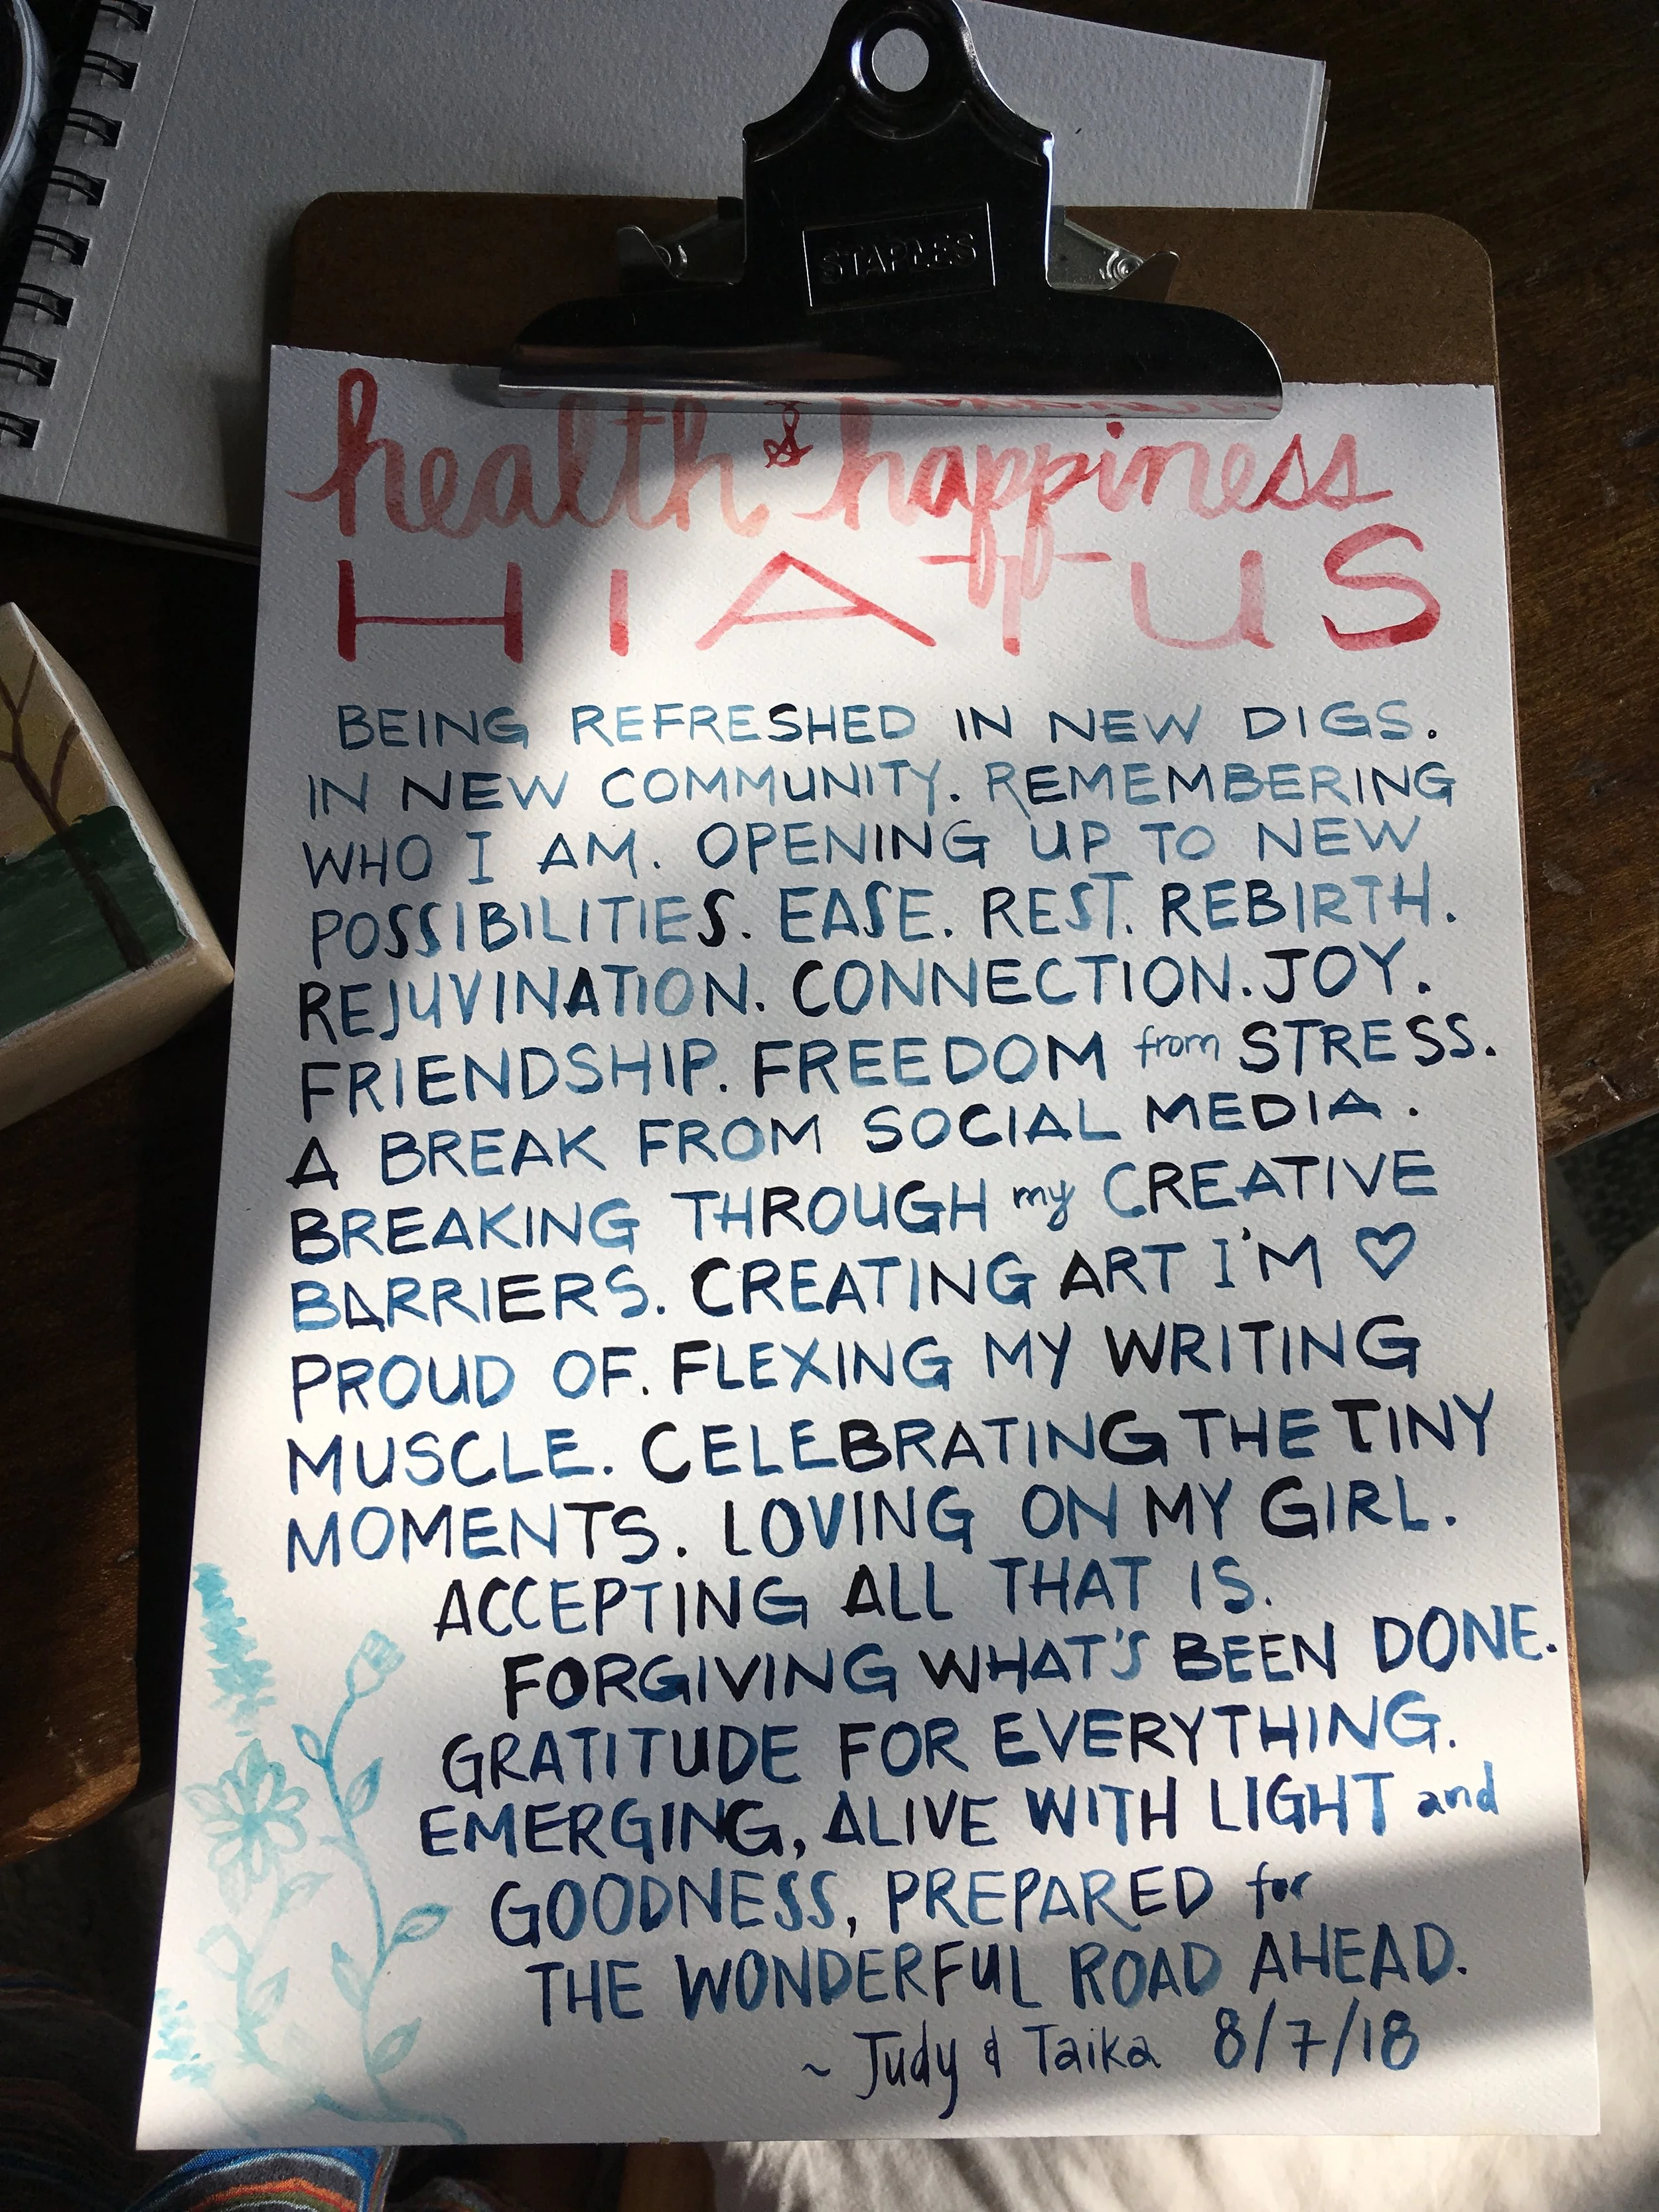 STAPLES
health & happiness
HIATUS
BEING REFRESHED IN NEW DIGS.
IN NEW COMMUNITY. REMEMBERING
WHO I AM. OPENING UP TO NEW
POSSIBILITIES. EASE. REST. REBIRTH.
REJUVINATION. CONNECTION. JOY.
FRIENDSHIP. FREEDOM from STRESS.
A BREAK FROM SOCIAL MEDIA.
BREAKING THROUGH my CREATIVE
BARRIERS. CREATING ART I'M ♡
PROUD OF. FLEXING MY WRITING
MUSCLE. CELEBRATING THE TINY
MOMENTS. LOVING ON MY GIRL.
ACCEPTING ALL THAT IS.
FORGIVING WHAT'S BEEN DONE.
GRATITUDE FOR EVERYTHING.
EMERGING, ALIVE WITH LIGHT and
GOODNESS, PREPARED for
THE WONDERFUL ROAD AHEAD.
~ Judy & Taika 8/7/18